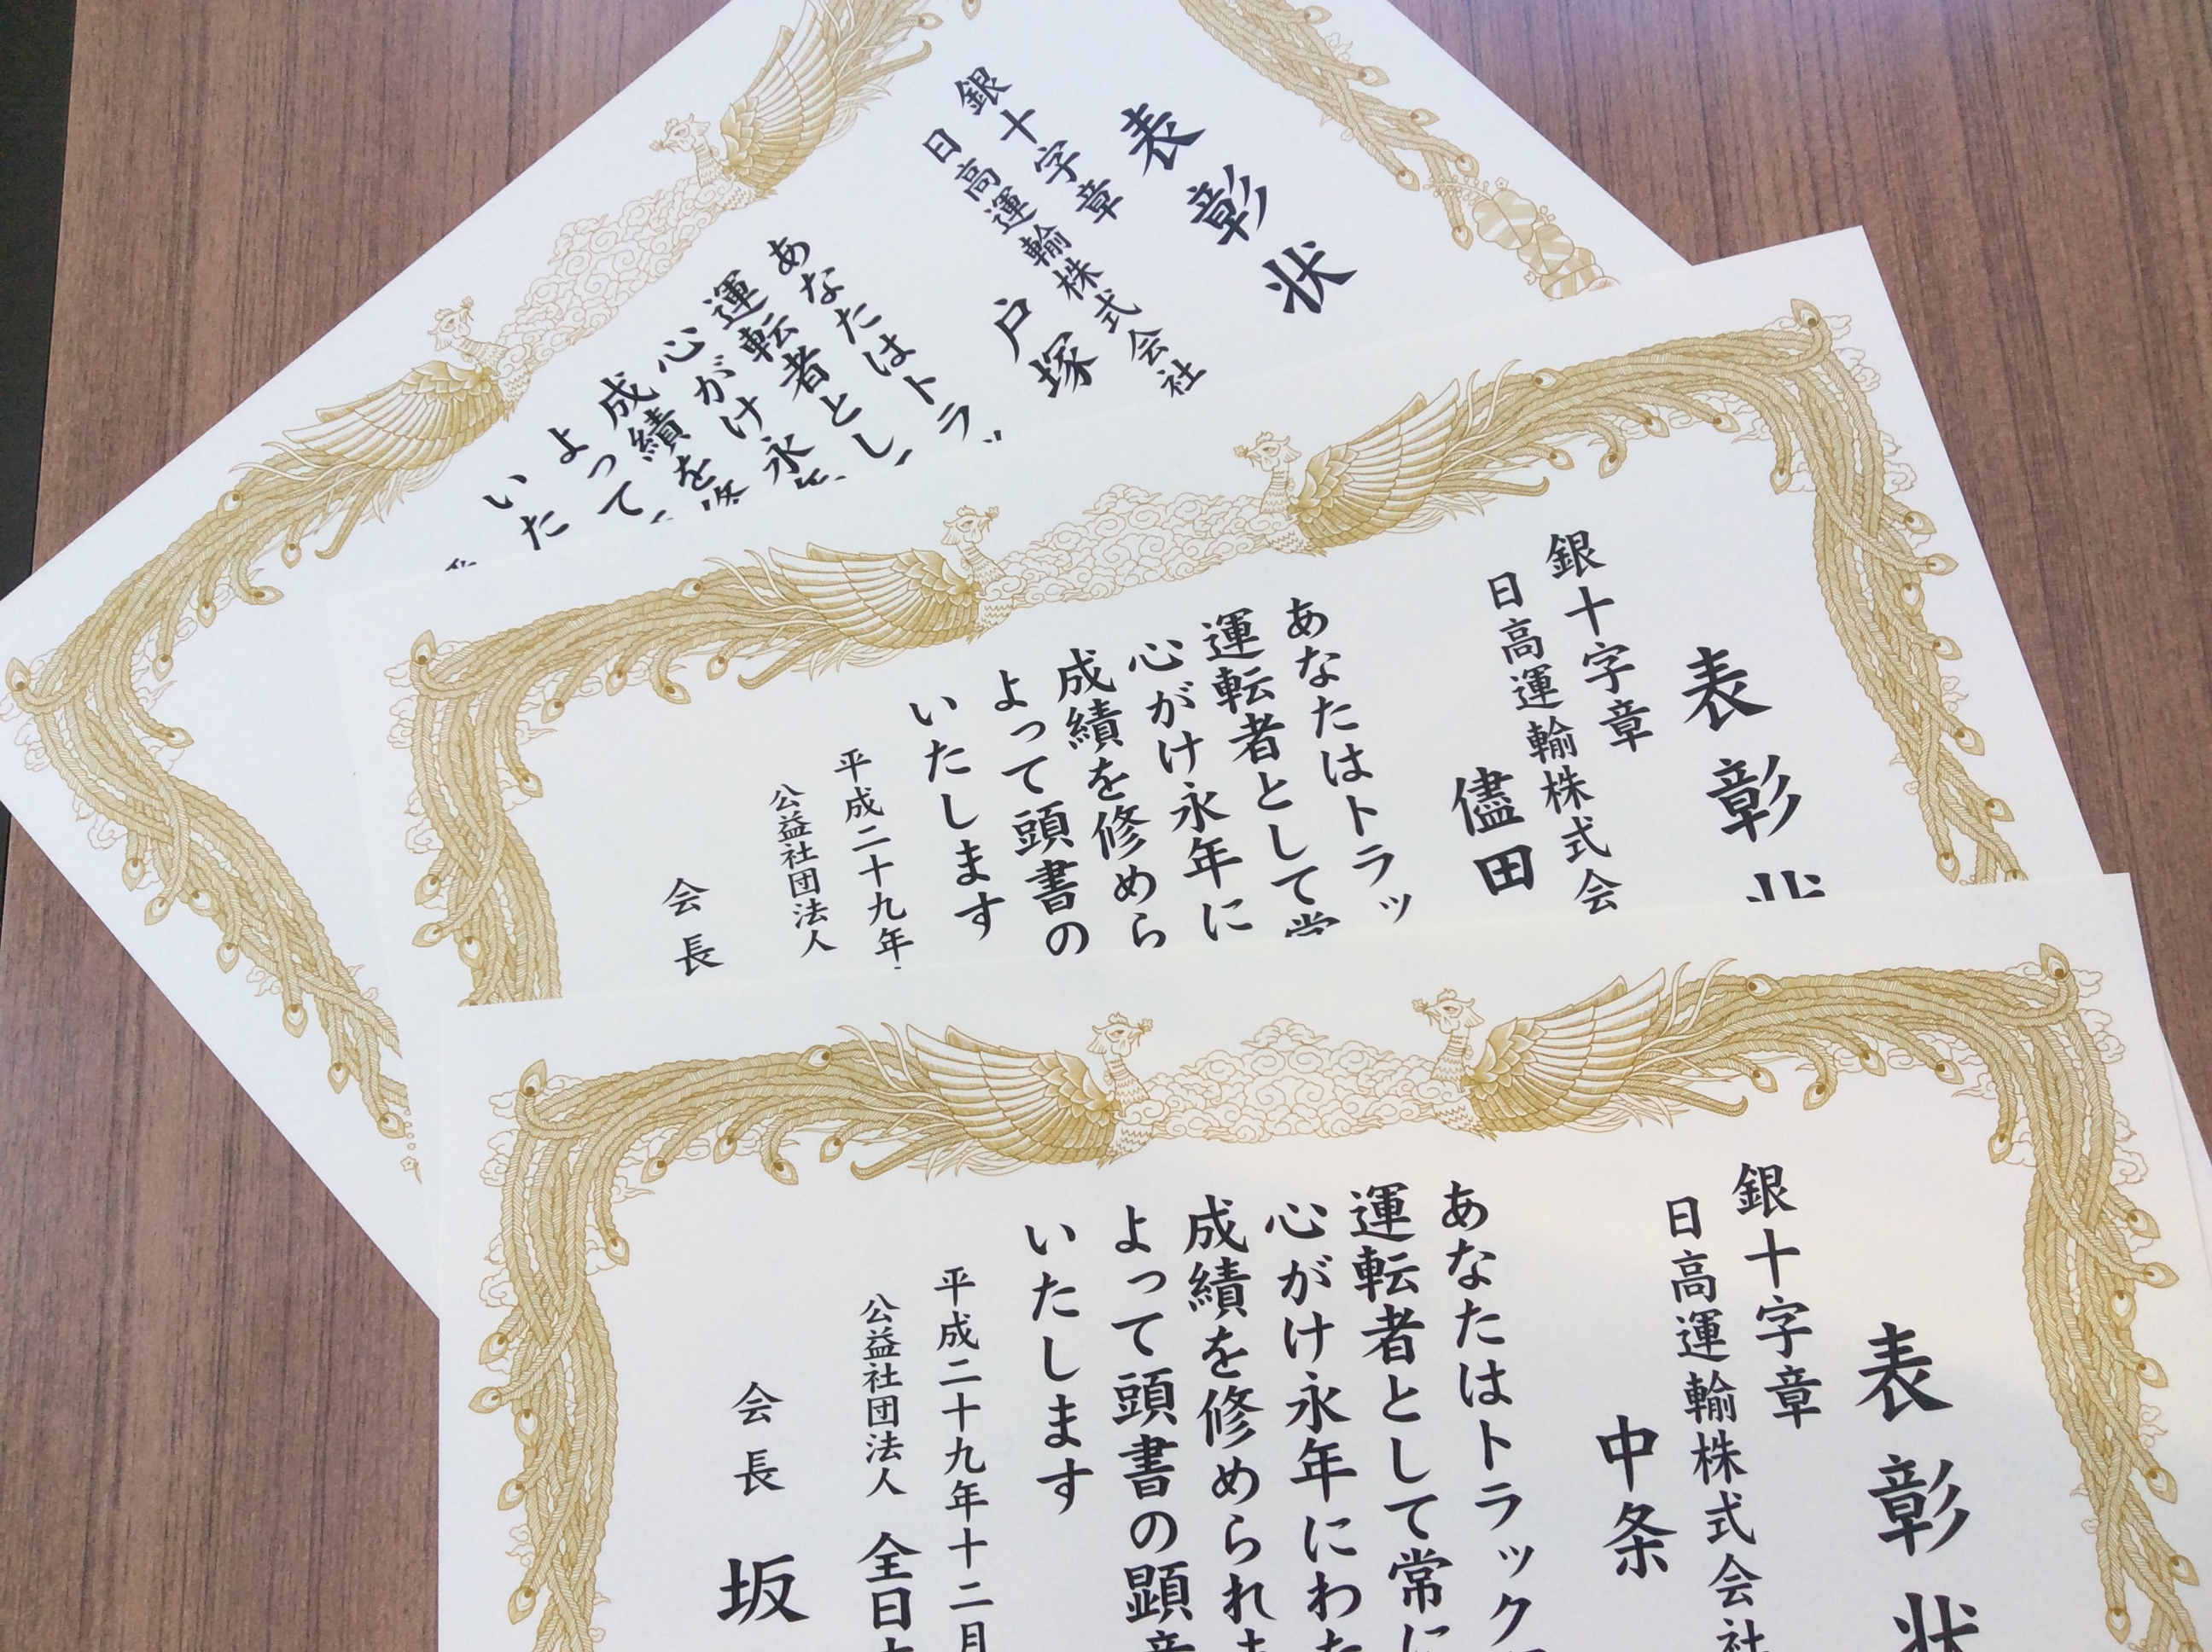 表彰状
銀十字章
日高運輸株式会社
戸塚
あなたはトラッ
運転者とし
心がけ永
成績を
よって
いた
表彰
銀十字章
日高運輸株式会
儘田
あなたはトラッ
運転者として常
心がけ永年に
成績を修めら
よって頭書の
いたします
平成二十九年
公益社団法人
会長
表彰状
銀十字章
日高運輸株式会社
中条
あなたはトラック
運転者として常に
心がけ永年にわた
成績を修められ
よって頭書の顕章
いたします
平成二十九年十二月
公益社団法人 全日
会長 坂